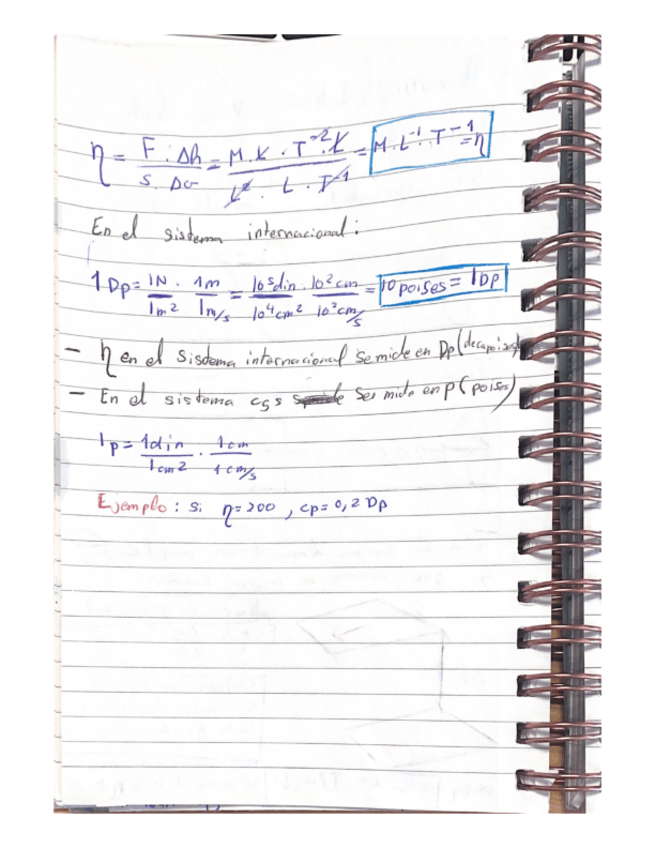 η = F . Δh / S . Δv = M . L . T⁻² . L / L² . L . T⁻¹ = M . L⁻¹ . T⁻¹ = η
En el sistema internacional:
1 Dp = 1N / 1m² . 1m / 1m/s = 10⁵ din / 10⁴ cm² . 10² cm / 10² cm/s = 10 poises = 1 Dp
- η en el Sistema internacional se mide en Dp (decapoises)
- En el sistema cgs Ser mide en P (poises)
1 p = 1 din / 1 cm² . 1 cm / 1 cm/s
Ejemplo: Si η = 200 , cp = 0,2 Dp